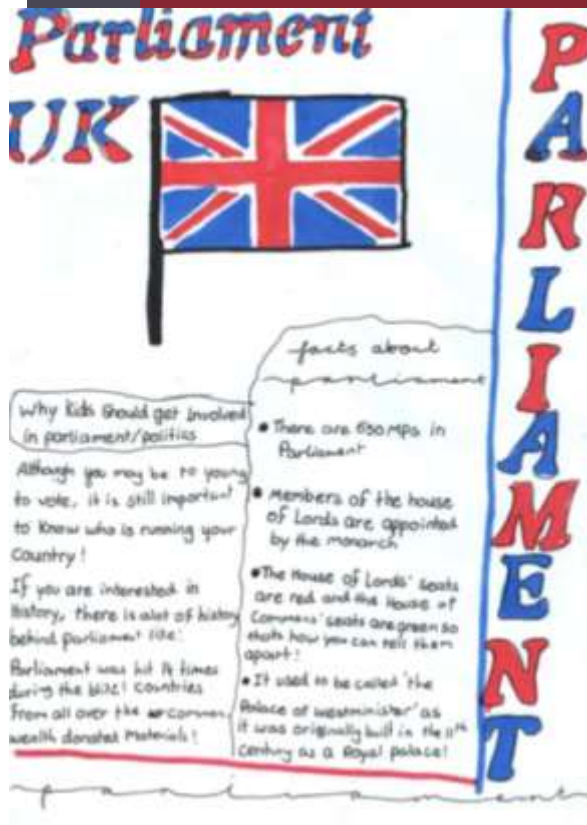 Parliament
UK
PARLIAMENT
Why Kids Should get Involved
in parliament/politics
Although you may be to young
to vote, it is still important
to know who is running your
Country!
If you are interested in
history, there is alot of history
behind parliament life!
Parliament was hit 14 times
during the blitz! Countries
from all over the common
wealth donated materials!
facts about
parliament
• There are 650 MPs in
Parliament
• Members of the house
of Lords are appointed
by the monarch
• The House of Lords' seats
are red and the House of
Commons' seats are green so
thats how you can tell them
apart!
• It used to be called 'the
Palace of westminister' as
it was originally built in the 11th
century as a Royal palace!
parliament